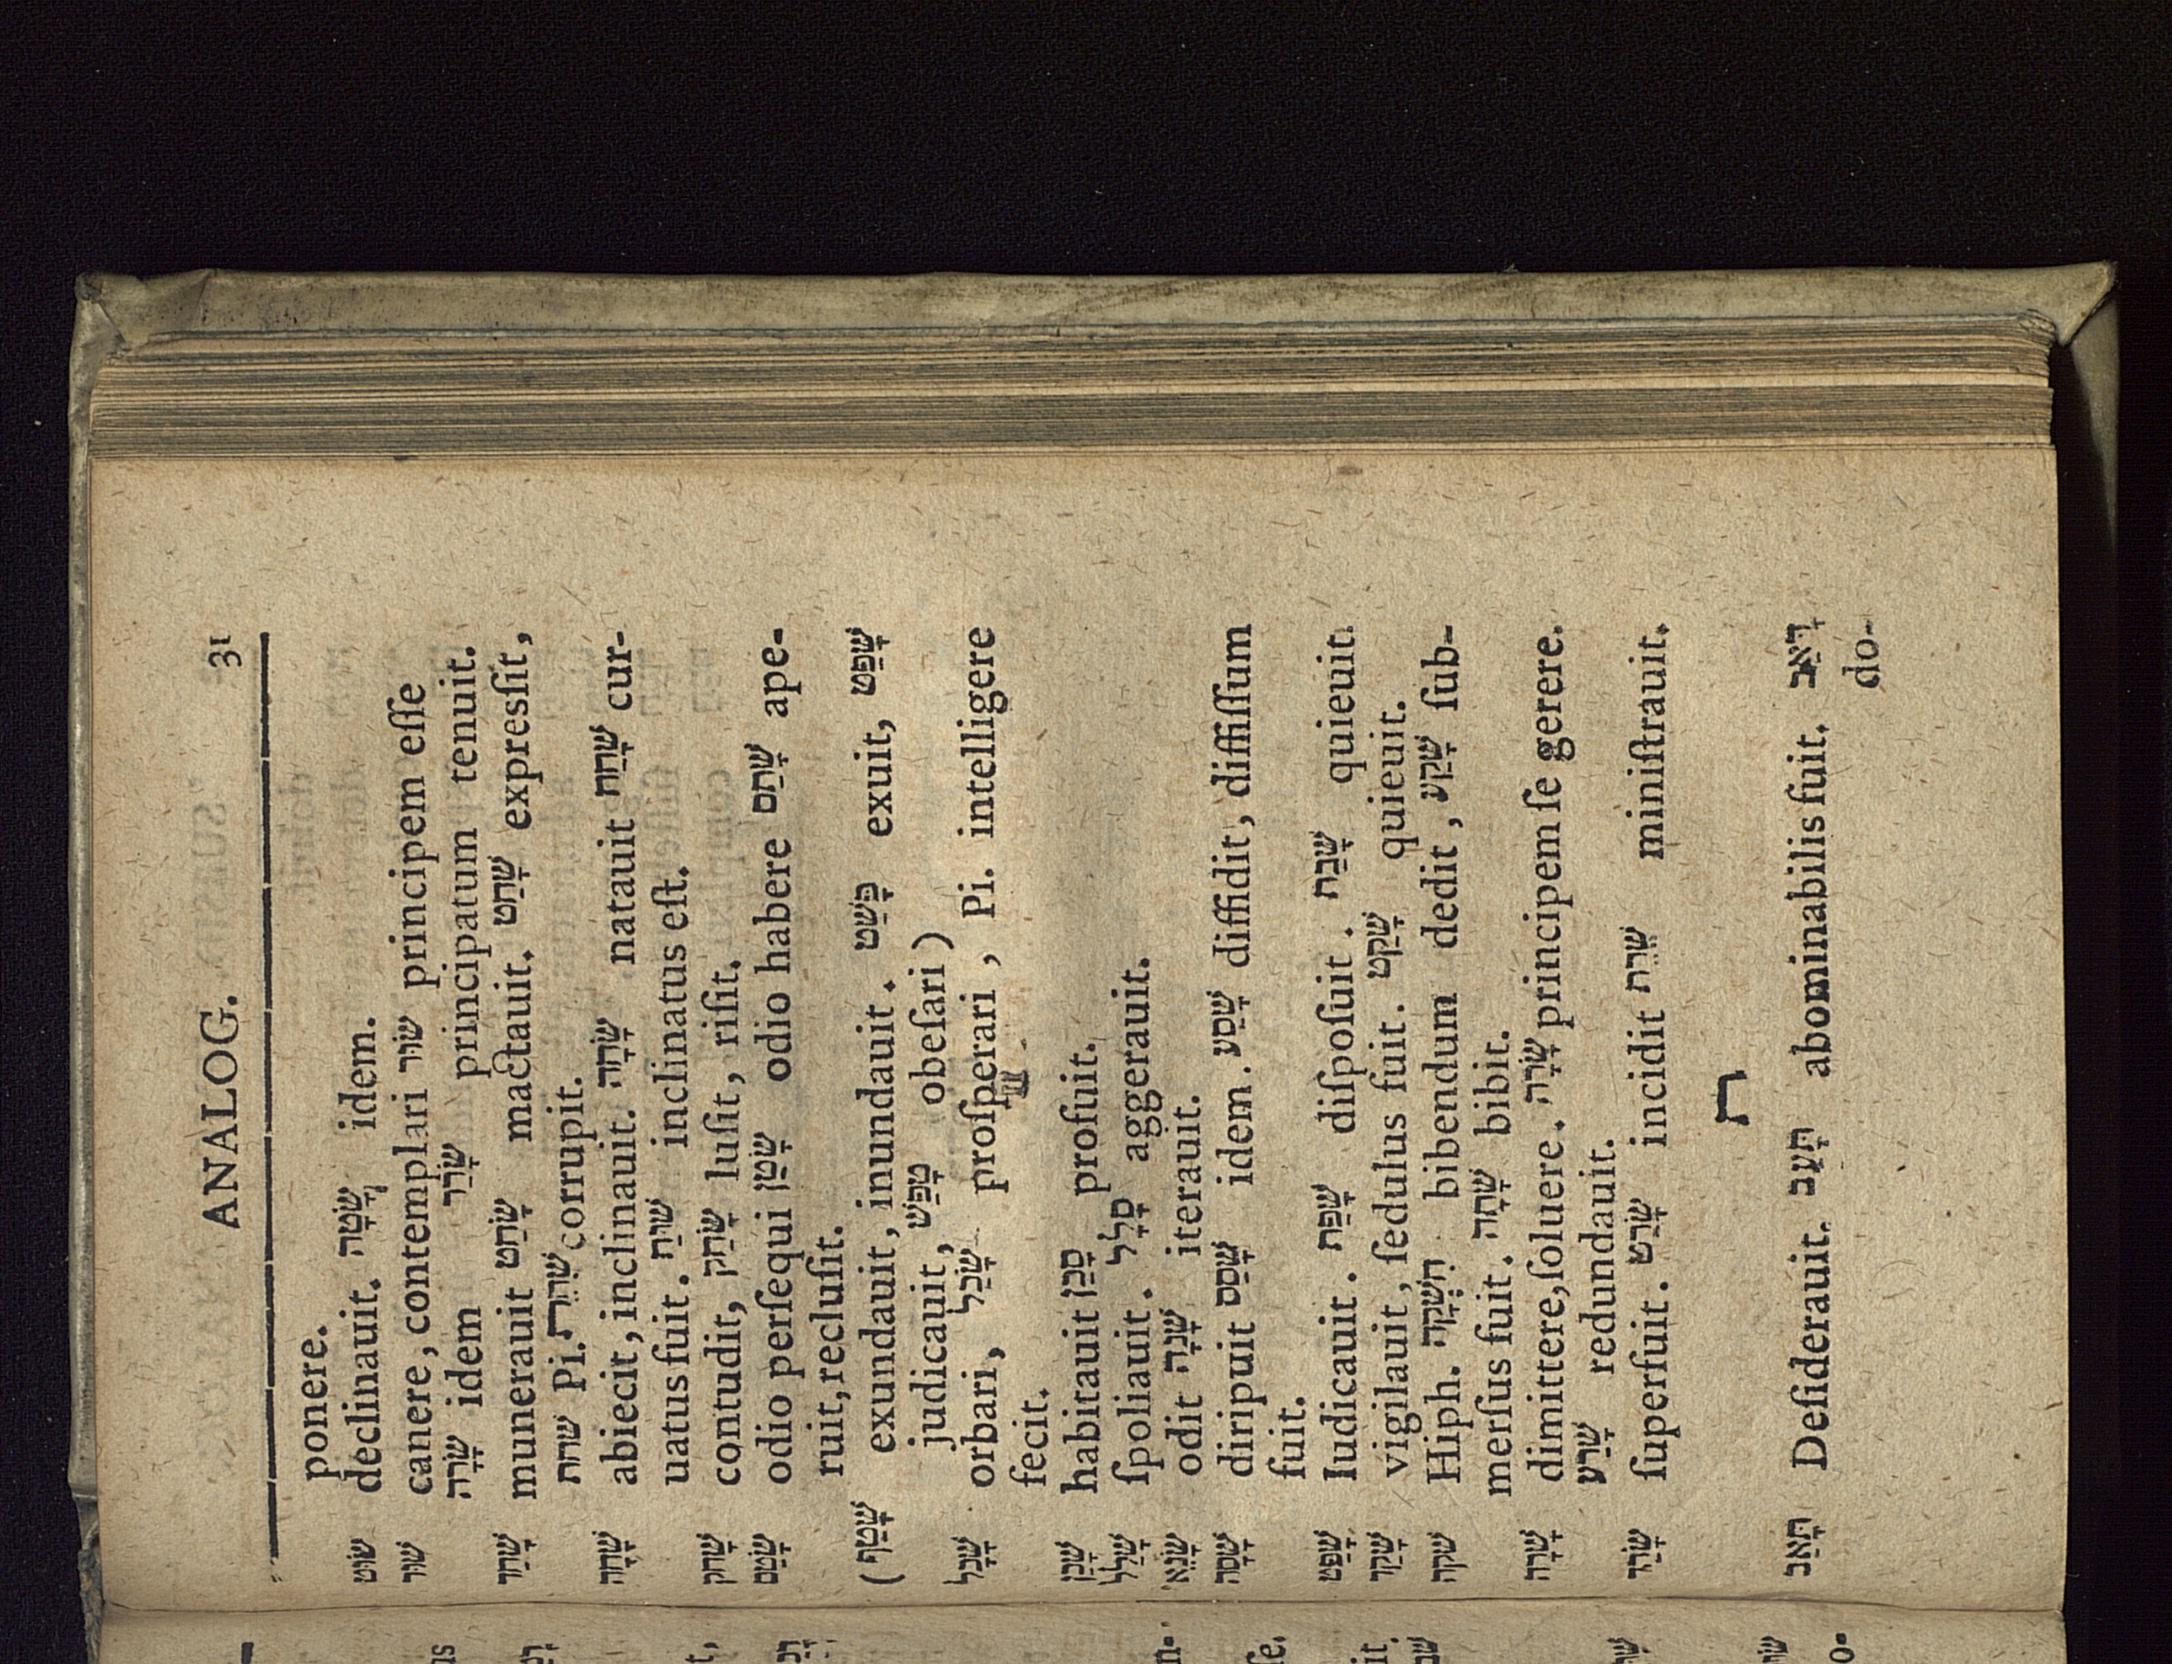 ANALOG. 31
ponere.
שׂוּט declinauit. שָׂטָה idem.
שׁוּר canere, contemplari שׂוּר principem eſſe
שָׂרָה idem שָׂרַר principatum tenuit.
שָׁחַד munerauit שָׁחַט mactauit. שָׂחַט expreſſit,
שחת Pi. שִׁחֵת corrupit.
שָׁחָה abiecit, inclinauit. שָׂחָה natauit שָׁחַח cur-
uatus fuit. שׁוּחַ inclinatus eſt.
שָׁחַק contudit, שָׂחַק luſit, riſit.
שָׂטַם odio perſequi שָׂטַן odio habere שָׁתַם ape-
ruit, recluſit.
(שָׁטַף exundauit, inundauit. פָּשַׁט exuit, שָׁפַט
judicauit, טָפַשׁ obeſari)
שָׁכַל orbari, שָׂכַל proſperari, Pi. intelligere
fecit.
שָׁכַן habitauit סָכַן profuit.
שָׁלַל ſpoliauit. סָלַל aggerauit.
שָׂנֵא odit שָׁנָה iterauit.
שָׁסָה diripuit שָׁסַס idem. שָׁסַע diffidit, diffiſſum
fuit.
שָׁפַט Iudicauit. שָׁפַת diſpoſuit. שָׁבַת quieuit.
שָׁקַד vigilauit, ſedulus fuit. שָׁקַט quieuit.
שקה Hiph. הִשְׁקָה bibendum dedit, שָׁקַע ſub-
merſus fuit. שָׁתָה bibit.
שָׁרָה dimittere, ſoluere. שָׂרָה principem ſe gerere.
שָׂרַע redundauit.
שָׂרַד ſuperfuit. שָׂרַט incidit שֵׁרֵת miniſtrauit.
ת
תָּאַב Deſiderauit. תָּעַב abominabilis fuit. דָּאַב
do-